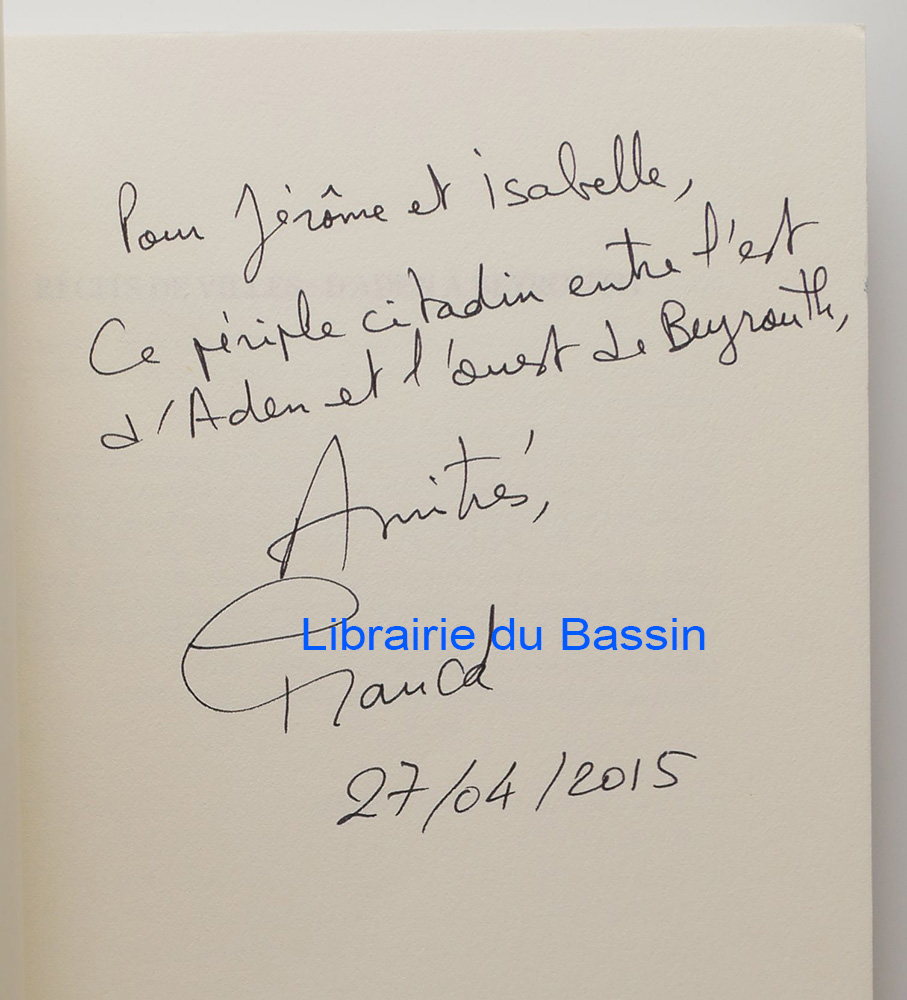 Pour Jérôme et Isabelle,
Ce périple citadin entre l'est
d'Aden et l'ouest de Beyrouth,
Amitiés,
Librairie du Bassin
27/04/2015